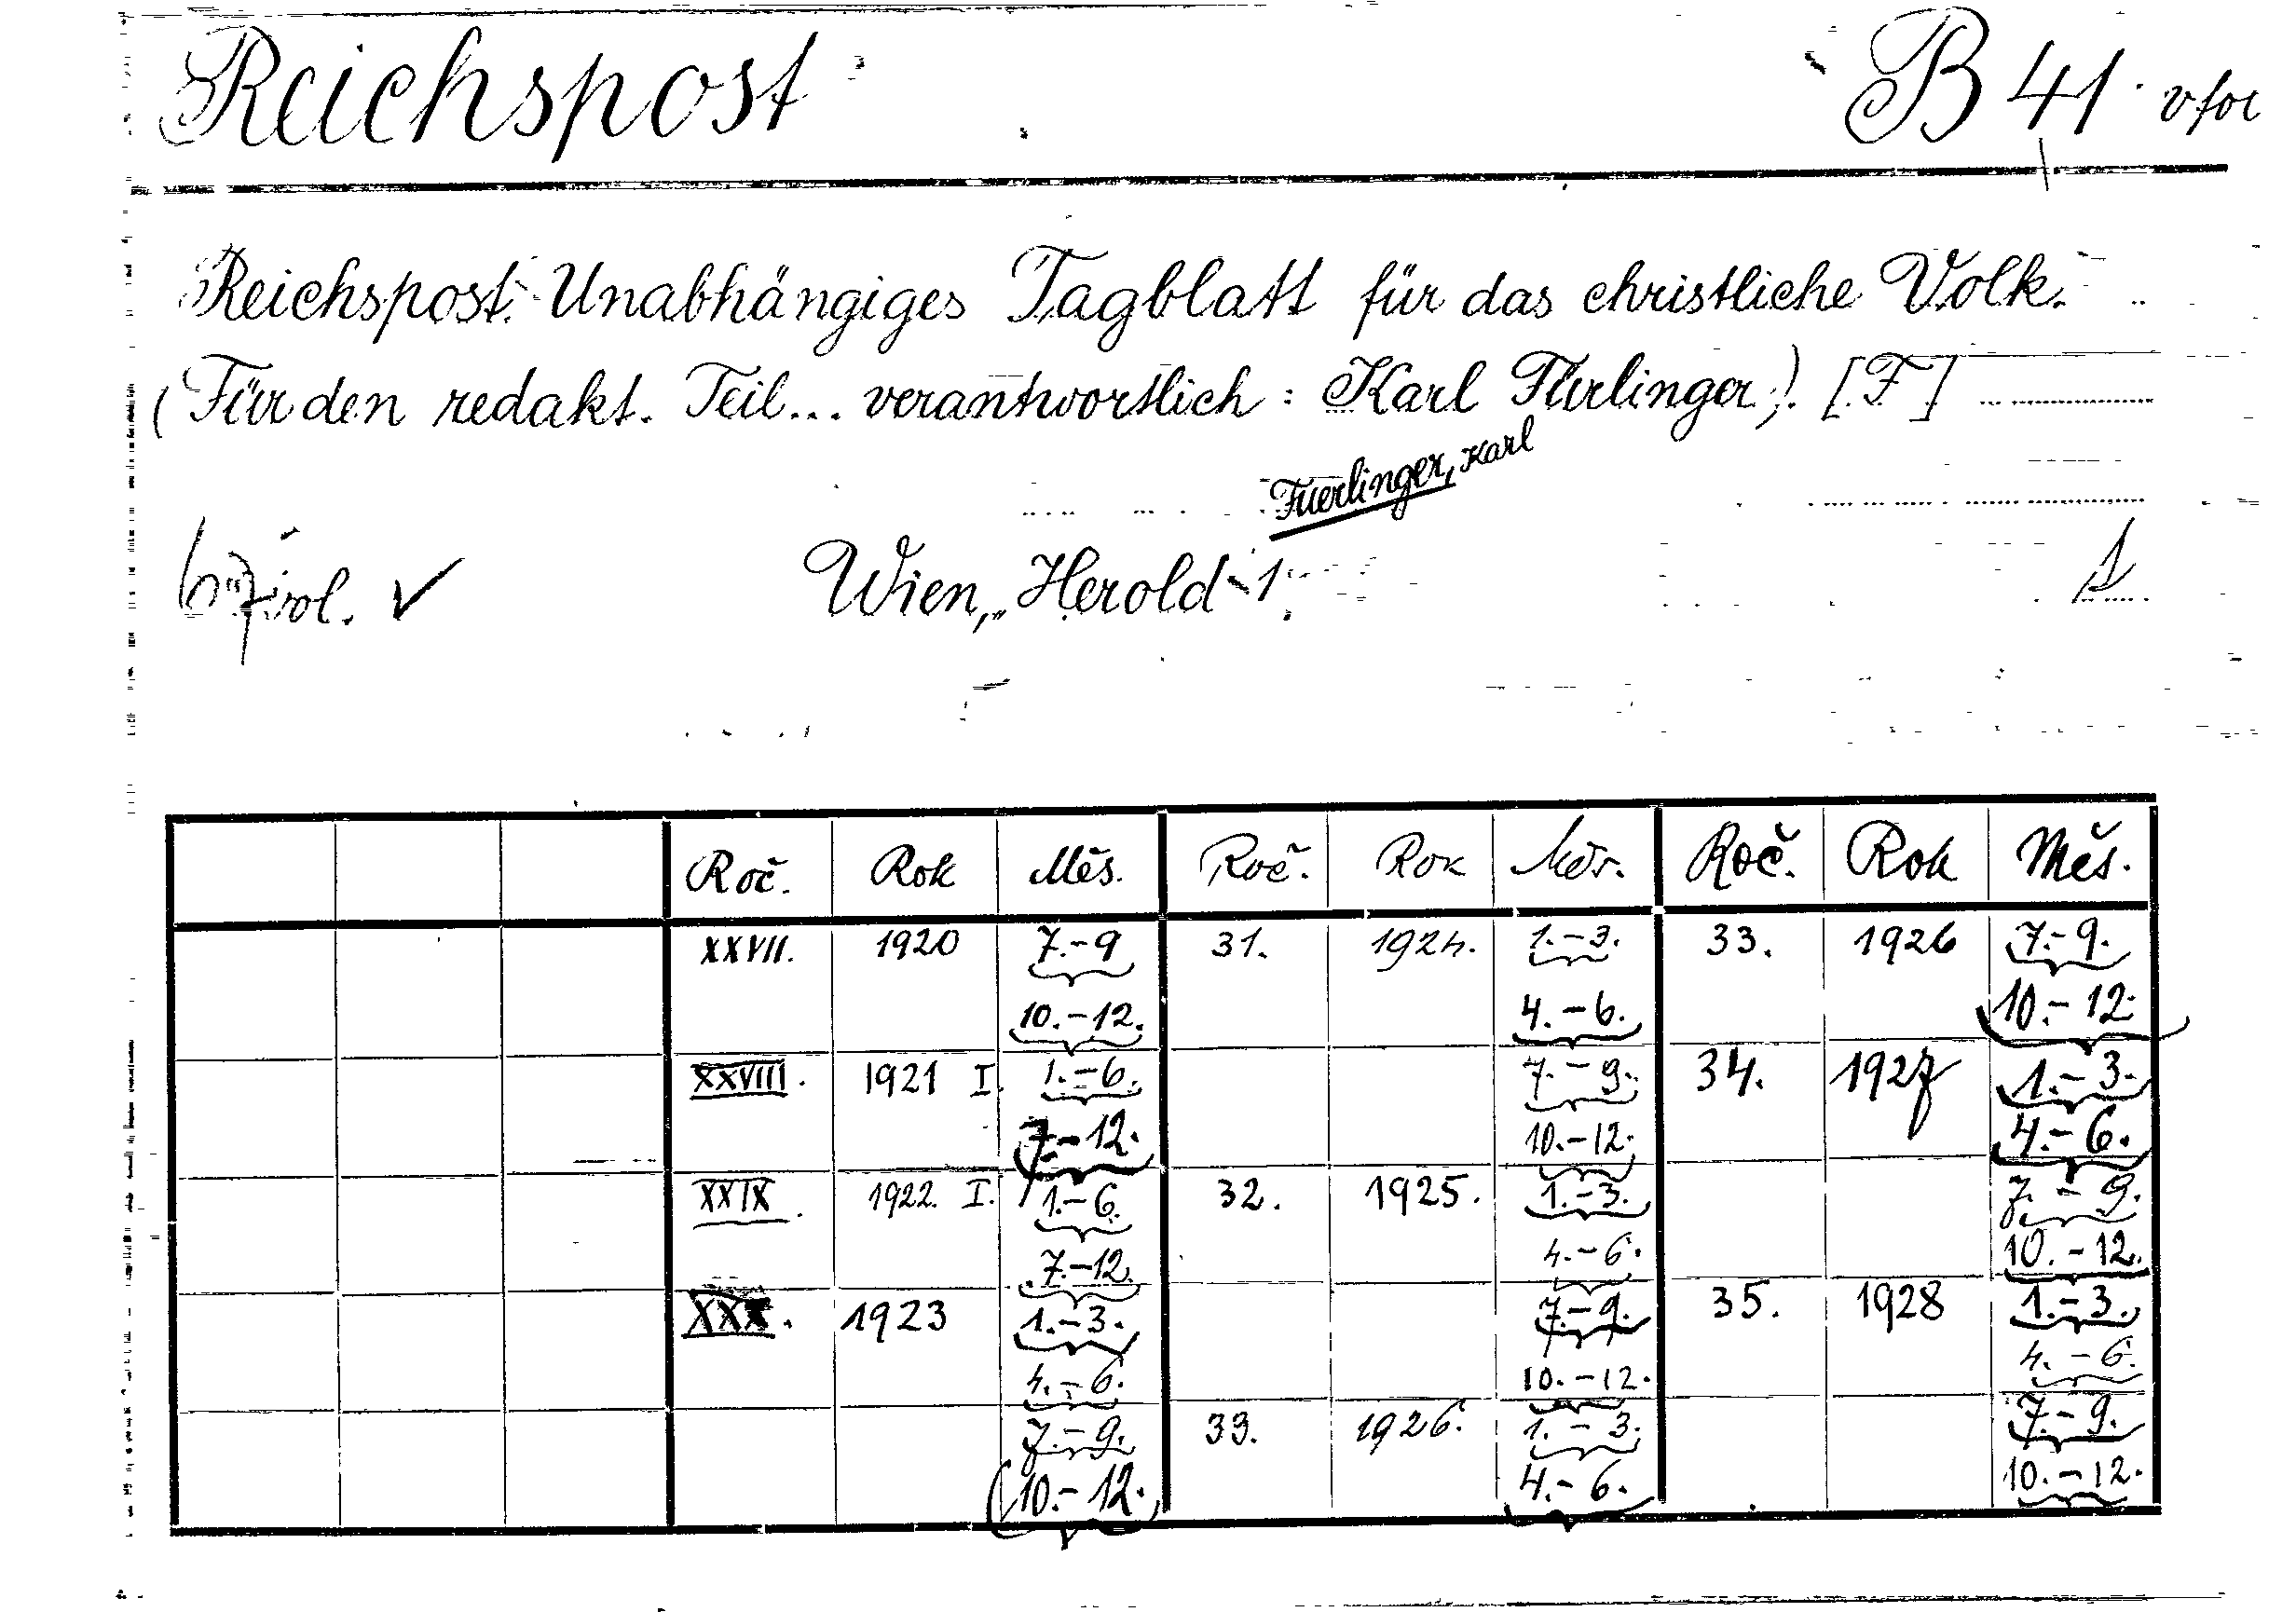 Reichspost B 41
Reichspost. Unabhängiges Tagblatt für das christliche Volk.
(Für den redakt. Teil... verantwortlich: Karl Fürlinger). [F]
Fuerlinger, Karl
Wien, „Herold" 1
Roč. Rok Měs. Roč. Rok Měs. Roč. Rok Měs.
XXVII. 1920 7.-9 31. 1924. 1.-3. 33. 1926 7.-9.
10.-12. 4.-6. 10.-12.
XXVIII. 1921 I. 1.-6. 7.-9. 34. 1927 1.-3.
7.-12. 10.-12. 4.-6.
XXIX. 1922. I. 1.-6. 32. 1925. 1.-3. 7.-9.
7.-12. 4.-6. 10.-12.
XXX. 1923 1.-3. 7.-9. 35. 1928 1.-3.
4.-6. 10.-12. 4.-6.
7.-9. 33. 1926. 1.-3. 7.-9.
10.-12. 4.-6. 10.-12.